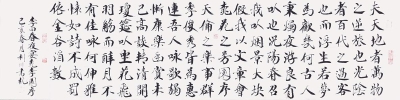 夫天地者萬物
之逆旅也光陰
者百代之過客
也而浮生若夢
為歡幾何古人
秉燭夜遊良有
以也況陽春召
我以煙景大塊
假我以文章會
桃花之芳園序
天倫之樂事群
季俊秀皆為惠
連吾人詠歌獨
慚康樂幽賞未
已高談轉清開
瓊筵以坐花飛
羽觴而醉月不
有佳詠何伸雅
懷如詩不成罰
依金谷酒數
李白春夜宴桃李園序
己亥春月